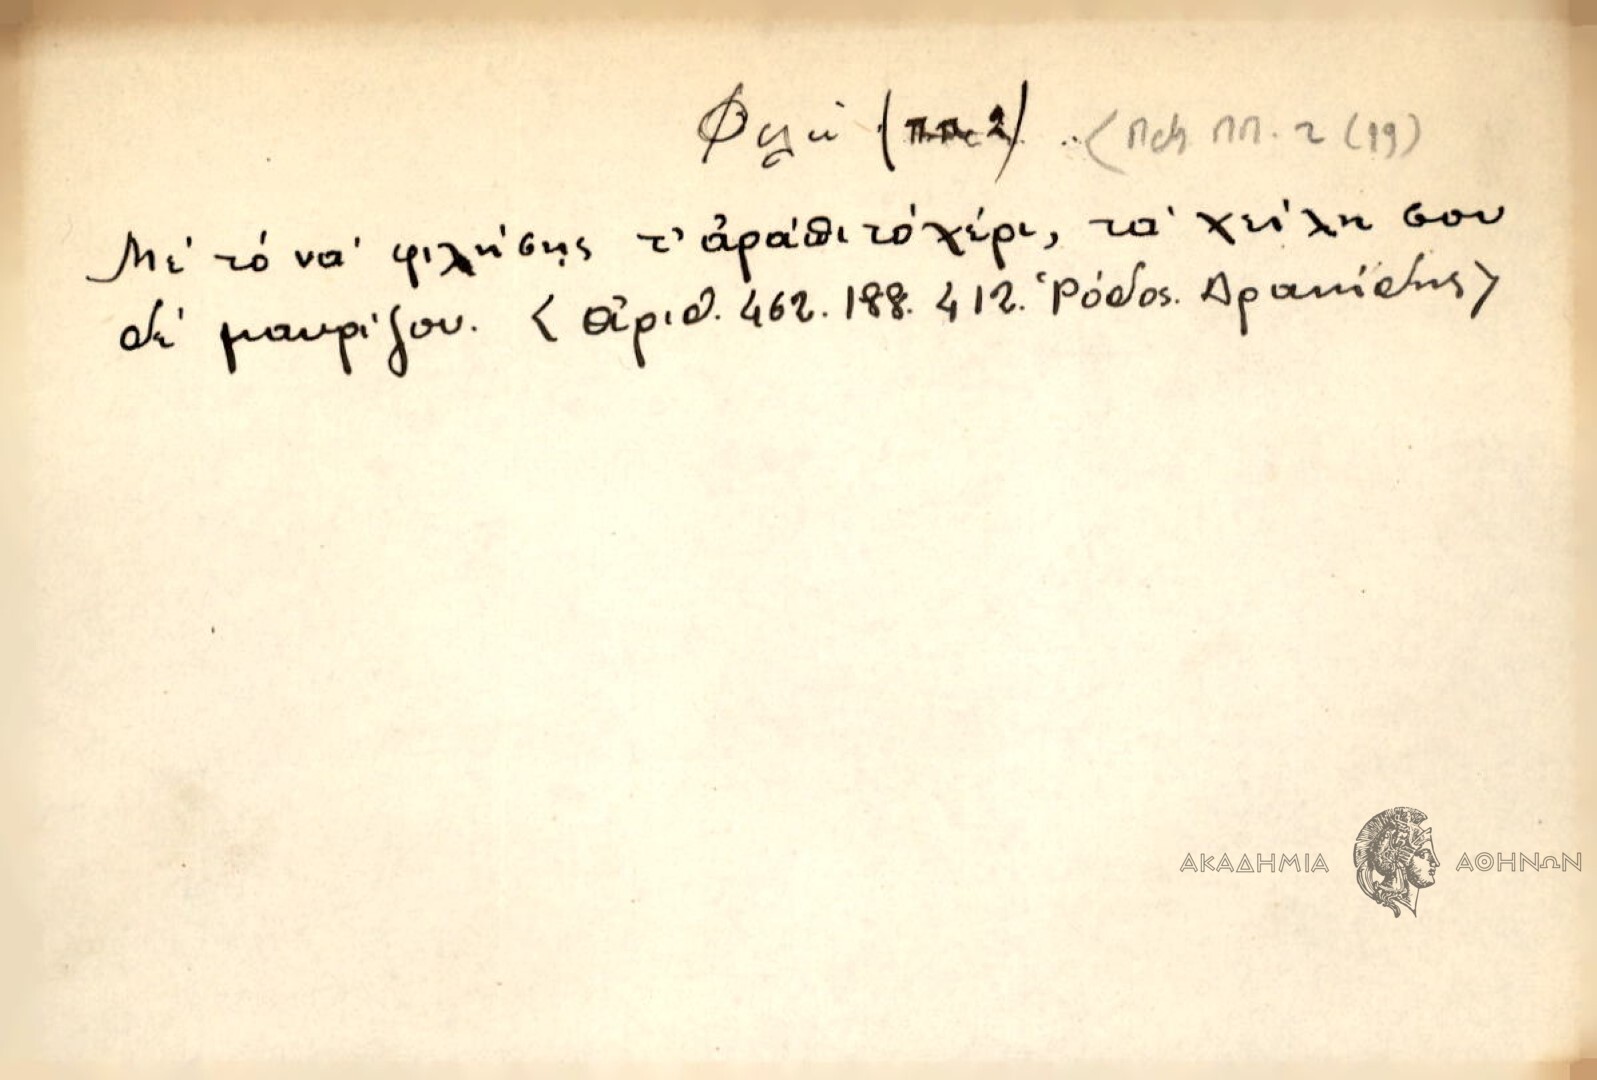 Φιλώ (ππ. 2) (ΠΠ. 2 (19)
Μέ τό νά φιλήσῃς τ' ἀράπι τό χέρι, τά χείλη σου
δέ μαυρίζου. < ἀριθ. 462. 188. 412. Ῥόδος. Δρακίδης >
ΑΚΑΔΗΜΙΑ ΑΘΗΝΩΝ